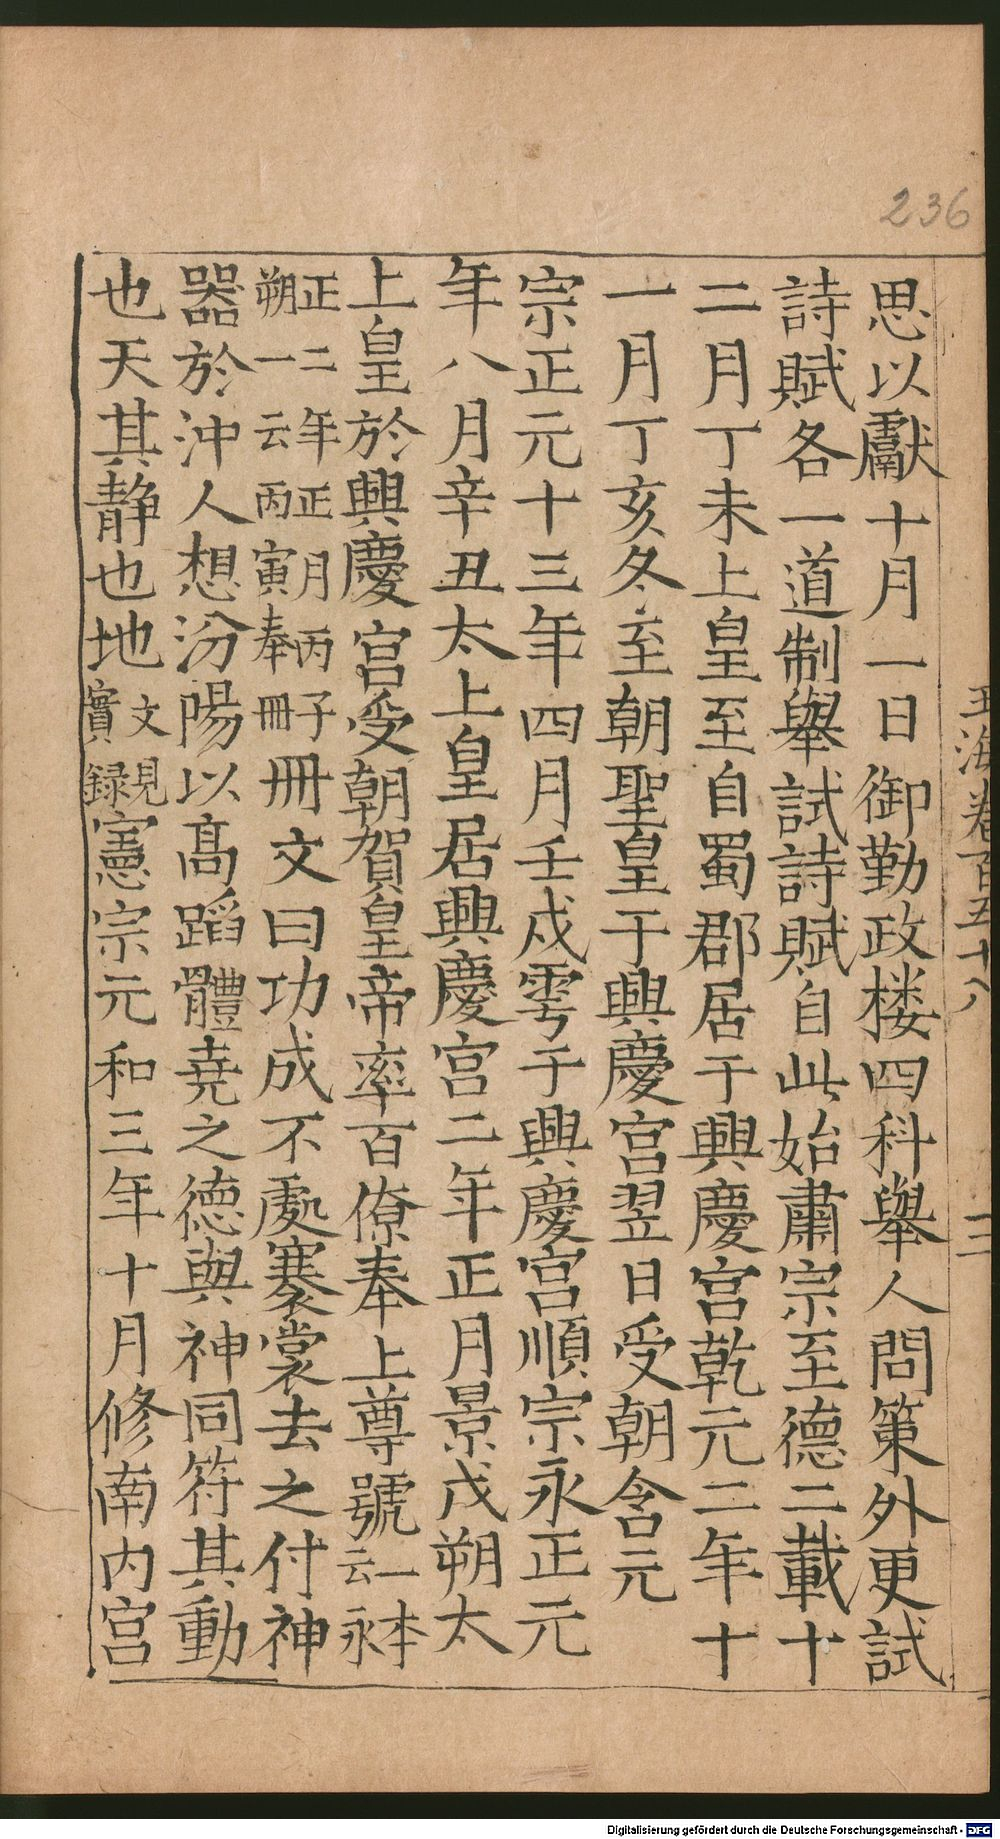 236
思以獻十月一日御勤政楼四科舉人問策外更試
詩賦各一道制舉試詩賦自此始肅宗至德二載十
二月丁未上皇至自蜀郡居于興慶宮乾元二年十
一月丁亥冬至朝聖皇于興慶宮翌日受朝含元
宗正元十三年四月壬戌雩于興慶宮順宗永正元
年八月辛丑太上皇居興慶宮二年正月景戌朔太
上皇於興慶宮受朝賀皇帝率百僚奉上尊號一本云永
正二年正月丙子朔一云丙寅奉冊冊文曰功成不處褰裳去之付神
器於沖人想汾陽以髙蹈體堯之德與神同符其動
也天其静也地文見實録憲宗元和三年十月修南内宮
玉海卷百五十八
Digitalisierung gefördert durch die Deutsche Forschungsgemeinschaft - DFG